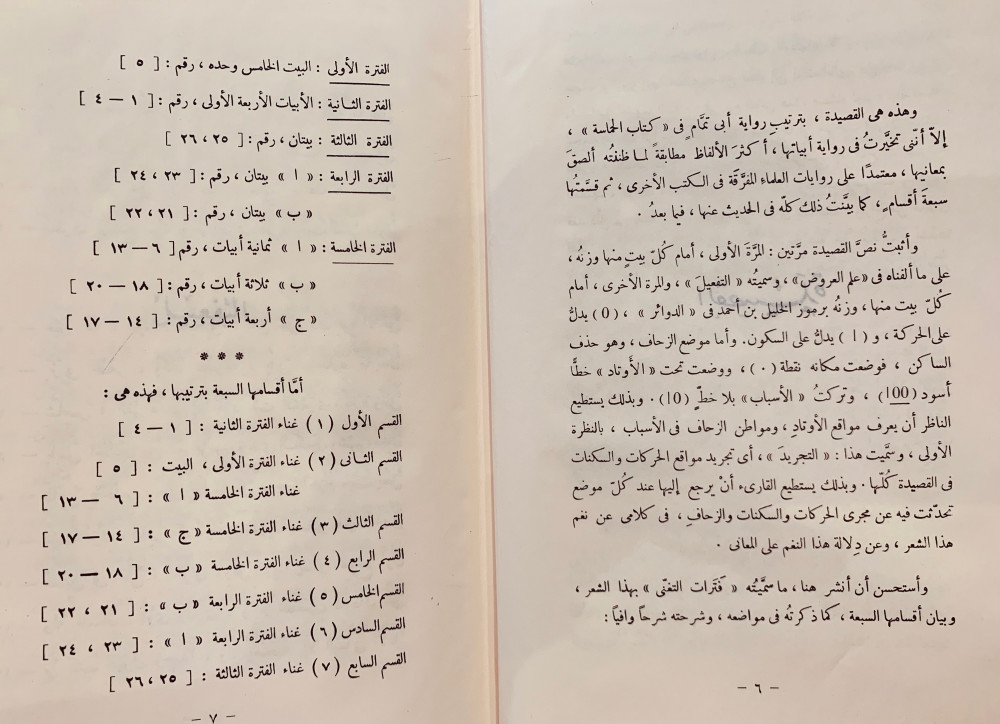 وهذه هى القصيدة ، بترتيب رواية أبى تمّام فى « كتاب الحماسة » ،
إلاّ أنّنى تخيَّرتُ فى رواية أبياتها ، أكثرَ الألفاظ مطابقةً لما ظننتُه ألصقَ
بمعانيها ، معتمدًا على روايات العلماء المفرَّقة فى الكتب الأخرى ، ثم قسَّمتُها
سبعةَ أقسامٍ ، كما بيَّنتُ ذلك كلّه فى الحديث عنها ، فيما بعدُ .
وأثبتُّ نصَّ القصيدة مرَّتين : المرَّةَ الأولى ، أمام كُلّ بيتٍ منها وزنُه ،
على ما ألفناه فى « علم العروض » ، وسميتُه « التفعيلَ » ، والمرة الأخرى ، أمام
كُلّ بيت منها ، وزنُه برموز الخليل بن أحمد فى « الدوائر » ، (O) يدلُّ
على الحركة ، و ( ا ) يدلُّ على السكون. وأما موضع الزحاف ، وهو حذف
الساكن ، فوضعت مكانه نقطة (٠) ، ووضعت تحت « الأوتاد » خطًّا
أسود (اOO) ، وتركتُ « الأسباب » بلا خطٍّ (اO) . وبذلك يستطيع
الناظر أن يعرف مواقع الأوتادِ ، ومواطن الزحاف فى الأسباب ، بالنظرة
الأولى ، وسمَّيت هذا : « التجريدَ » ، أى تجريد مواقع الحركات والسكنات
فى القصيدة كُلّها . وبذلك يستطيع القارىء أنْ يرجع إليها عند كُلّ موضع
تحدّثت فيه عن مجرى الحركات والسكنات والزحافِ ، فى كلامى عن نغم
هذا الشعر ، وعن دِلالة هذا النغم على المعانى .
وأستحسن أن أنشر هنا ، ما سمَّيتُه « فَتَرات التغنّى » بهذا الشعر ،
وبيان أقسامها السبعة ، كما ذكرتُه فى مواضعه ، وشرحته شرحاً وافياً :
– ٦ –
الفترة الأولى : البيت الخامس وحده ، رقم : [ ٥ ]
الفترة الثانية : الأبيات الأربعة الأولى ، رقم : [ ١ – ٤ ]
الفترة الثالثة : بيتان ، رقم : [ ٢٥ ، ٢٦ ]
الفترة الرابعة : « ا » بيتان ، رقم : [ ٢٣ ، ٢٤ ]
« ب » بيتان ، رقم : [ ٢١ ، ٢٢ ]
الفترة الخامسة : « ا » ثمانية أبيات ، رقم [ ٦ – ١٣ ]
« ب » ثلاثة أبيات ، رقم : [ ١٨ – ٢٠ ]
« ج » أربعة أبيات ، رقم : [ ١٤ – ١٧ ]
* * *
أمَّا أقسامها السبعة بترتيبها ، فهذه هى :
القسم الأول (١) غناء الفترة الثانية : [ ١ – ٤ ]
القسم الثانى (٢) غناء الفترة الأولى ، البيت : [ ٥ ]
غناء الفترة الخامسة « ا » : [ ٦ – ١٣ ]
القسم الثالث (٣) غناء الفترة الخامسة « ج » : [ ١٤ – ١٧ ]
القسم الرابع (٤) غناء الفترة الخامسة « ب » : [ ١٨ – ٢٠ ]
القسم الخامس (٥) غناء الفترة الرابعة « ب » : [ ٢١ ، ٢٢ ]
القسم السادس (٦) غناء الفترة الرابعة « ا » : [ ٢٣ ، ٢٤ ]
القسم السابع (٧) غناء الفترة الثالثة : [ ٢٥ ، ٢٦ ]
– ٧ –